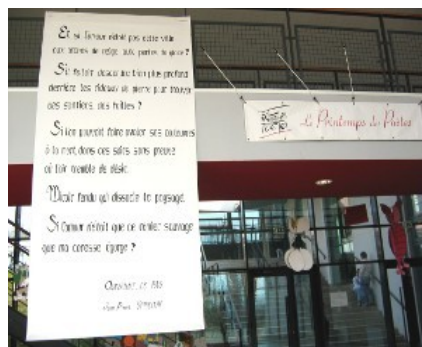 Et si l'amour n'était pas cette ville
aux arbres de neige, aux portes de givre ?
S'il fallait descendre bien plus profond
derrière les rideaux de pierre pour trouver
des sentiers, des huttes ?
Si l'on pouvait faire avaler ses couleuvres
à la mort, dans ces soirs sans preuve
où l'air tremble de désir.
Miroir fendu qui dissocie le paysage.
Si l'amour n'était que ce collier sauvage
que ma caresse égorge ?
Le Printemps des Poètes